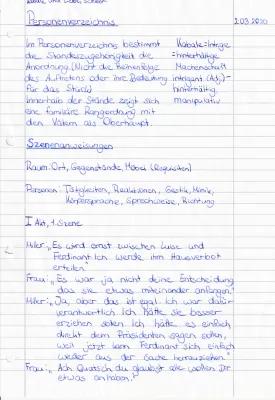 Personenverzeichnis 2.03.2020
Im Personenverzeichnis bestimmt Kabale=Intrige
die Standeszugehörigkeit die =hinterhältige
Anordnung. (Nicht die Reihenfolge Machenschaft
des Auftretens oder ihre Bedeutung intrigant (Adj.)=
für das Stück) hinterhältig,
Innerhalb der Stände zeigt sich manipulativ
eine familiäre Rangordnung mit
den Vätern als Oberhaupt.
Szenenanweisungen
Raum: Ort, Gegenstände, Möbel (Requisiten)
Personen: Tätigkeiten, Reaktionen, Gestik, Mimik,
Körpersprache, Sprechweise, Richtung
I Akt, 1. Szene
Miller: „Es wird ernst zwischen Luise und
Ferdinant. Ich werde ihm Hausverbot
erteilen"
Frau: „Es war ja nicht deine Entscheidung
das sie etwas miteinander anfangen."
Miller: „Ja, aber das ist egal. Ich war dafür
verantwortlich. Ich hätte sie besser
erziehen sollen. Ich hätte es einfach
direkt dem Präsidenten sagen sollen,
weil jetzt kann Ferdinant sich einfach
wieder aus der Sache herausziehen."
Frau: „Ach Quatsch du glaubst alle wollen Dir
etwas anhaben."